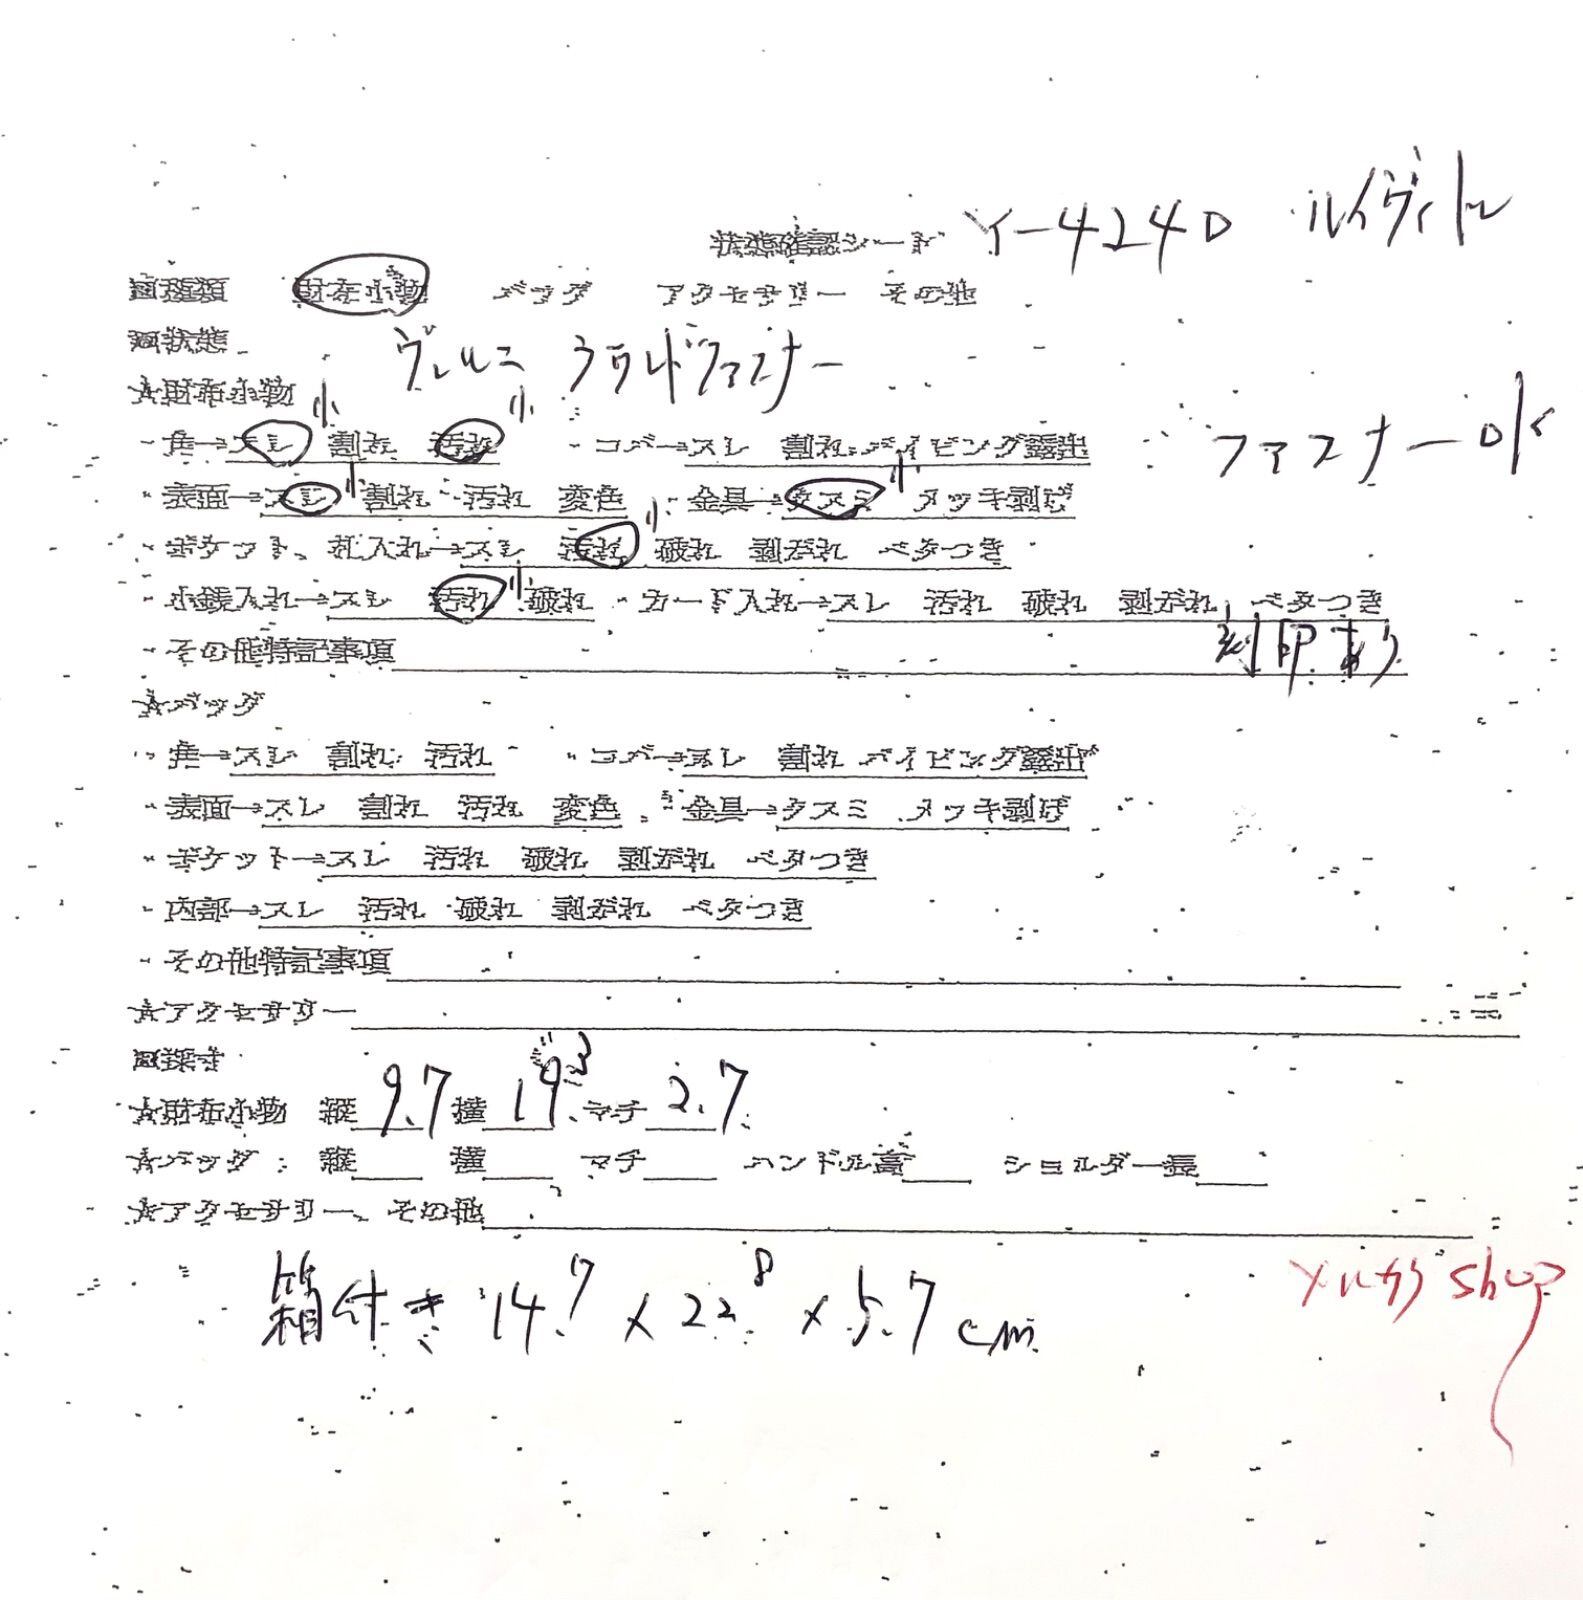 状態確認シート Y-424D ルイヴィトン
■種類 財布小物 バッグ アクセサリー その他
■状態 ヴェルニ ラウンドファスナー
★財布小物
・角→スレ 小 割れ 汚れ 小 ・コバ→スレ 割れ パイピング露出 ファスナーOK
・表面→スレ 小 割れ 汚れ 変色 ・金具→クスミ 小 メッキ剥げ
・ポケット、札入れ→スレ 汚れ 小 破れ 剥がれ ベタつき
・小銭入れ→スレ 汚れ 小 破れ ・カード入れ→スレ 汚れ 破れ 剥がれ ベタつき
・その他特記事項 刻印あり
★バッグ
・角→スレ 割れ 汚れ ・コバ→スレ 割れ パイピング露出
・表面→スレ 割れ 汚れ 変色 ・金具→クスミ メッキ剥げ
・ポケット→スレ 汚れ 破れ 剥がれ ベタつき
・内部→スレ 汚れ 破れ 剥がれ ベタつき
・その他特記事項
★アクセサリー
■採寸
★財布小物 縦 9.7 横 19.3 マチ 2.7
★バッグ 縦 横 マチ ハンドル高 ショルダー長
★アクセサリー、その他
箱付き 14.7 x 22.8 x 5.7 cm
メルカリ shop